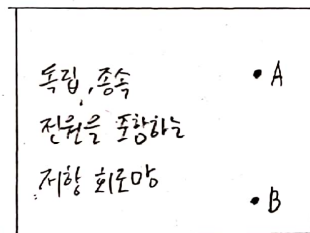 독립,종속
전원을 포함하는
저항 회로망
A
B